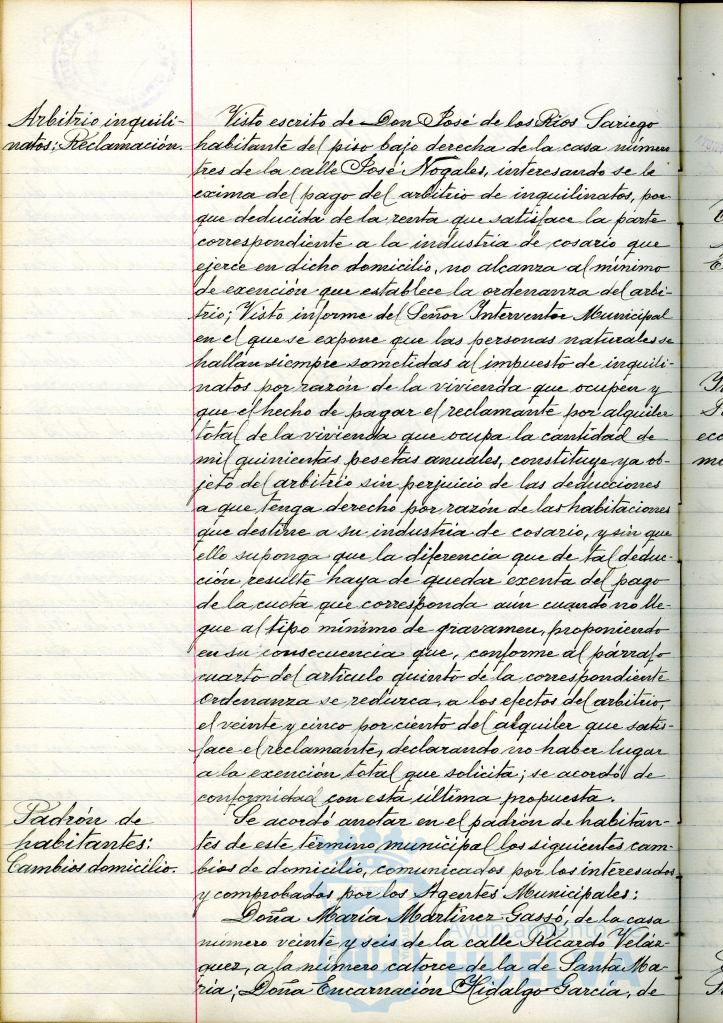 Arbitrio inquili-
natos; Reclamación.
Visto escrito de Don José de los Ríos Sariego
habitante del piso bajo derecha de la casa número
tres de la calle José Nogales, interesando se le
exima del pago del arbitrio de inquilinatos, por
que deducida de la renta que satisface la parte
correspondiente a la industria de cosario que
ejerce en dicho domicilio, no alcanza al mínimo
de exención que establece la ordenanza del arbi-
trio; Visto informe del Señor Interventor Municipal
en el que se expone que las personas naturales se
hallan siempre sometidas al impuesto de inquili-
natos por razón de la vivienda que ocupen y
que el hecho de pagar el reclamante por alquiler
total de la vivienda que ocupa la cantidad de
mil quinientas pesetas anuales, constituye ya ob-
jeto del arbitrio sin perjuicio de las deducciones
a que tenga derecho por razón de las habitaciones
que destine a su industria de cosario, y sin que
ello suponga que la diferencia que de tal deduc-
ción resulte haya de quedar exenta del pago
de la cuota que corresponda aún cuando no lle-
gue al tipo mínimo de gravamen, proponiendo
en su consecuencia que, conforme al párrafo
cuarto del artículo quinto de la correspondiente
Ordenanza se reduzca, a los efectos del arbitrio,
el veinte y cinco por ciento del alquiler que satis-
face el reclamante, declarando no haber lugar
a la exención total que solicita; se acordó de
conformidad con esta última propuesta.
Padrón de
habitantes:
Cambios domicilio.
Se acordó anotar en el padrón de habitan-
tes de este término municipal los siguientes cam-
bios de domicilio, comunicados por los interesados
y comprobados por los Agentes Municipales:
Doña María Martínez Gassó, de la casa
número veinte y seis de la calle Ricardo Veláz-
quez, a la número catorce de la de Santa Ma-
ría; Doña Encarnación Hidalgo García, de
Ayuntamiento
HUELVA